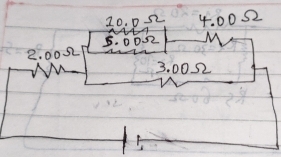 10.0 Ω
4.00 Ω
5.00 Ω
2.00 Ω
3.00 Ω